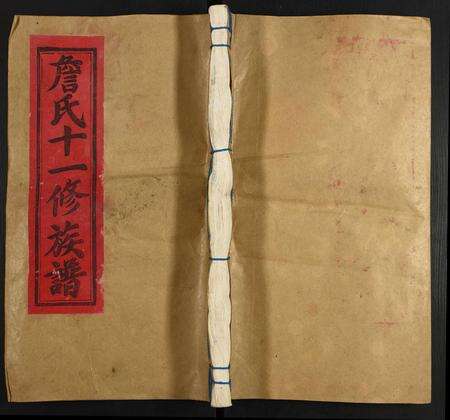 詹氏十一修族譜